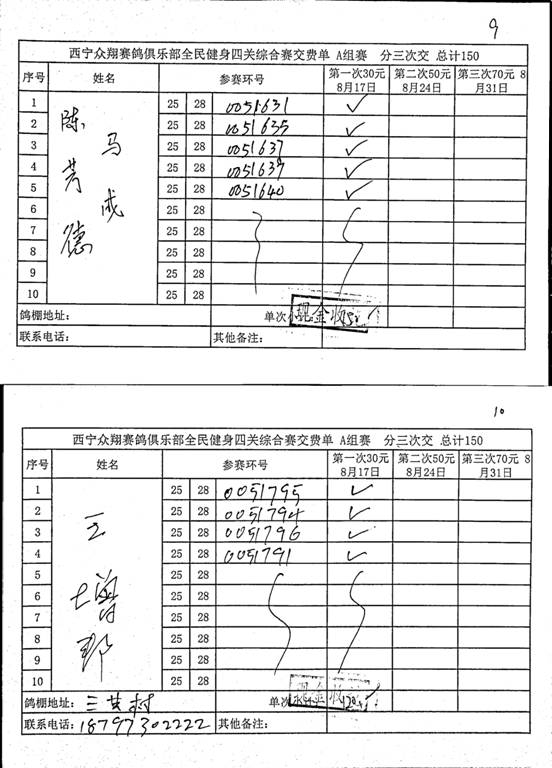 9
西宁众翔赛鸽俱乐部全民健身四关综合赛交费单 A组赛 分三次交 总计150
序号 姓名 参赛环号 第一次30元 8月17日 第二次50元 8月24日 第三次70元 8月31日
陈芳德 马成
1 25 28 0051631 ✓
2 25 28 0051635 ✓
3 25 28 0051637 ✓
4 25 28 0051639 ✓
5 25 28 0051640 ✓
6 25 28
7 25 28
8 25 28
9 25 28
10 25 28
鸽棚地址: 单次 现金收
联系电话: 其他备注:
10
西宁众翔赛鸽俱乐部全民健身四关综合赛交费单 A组赛 分三次交 总计150
序号 姓名 参赛环号 第一次30元 8月17日 第二次50元 8月24日 第三次70元 8月31日
王增邦
1 25 28 0051795 ✓
2 25 28 0051794 ✓
3 25 28 0051796 ✓
4 25 28 0051791 ✓
5 25 28
6 25 28
7 25 28
8 25 28
9 25 28
10 25 28
鸽棚地址: 三其村 单次 现金收
联系电话: 18797302222 其他备注: